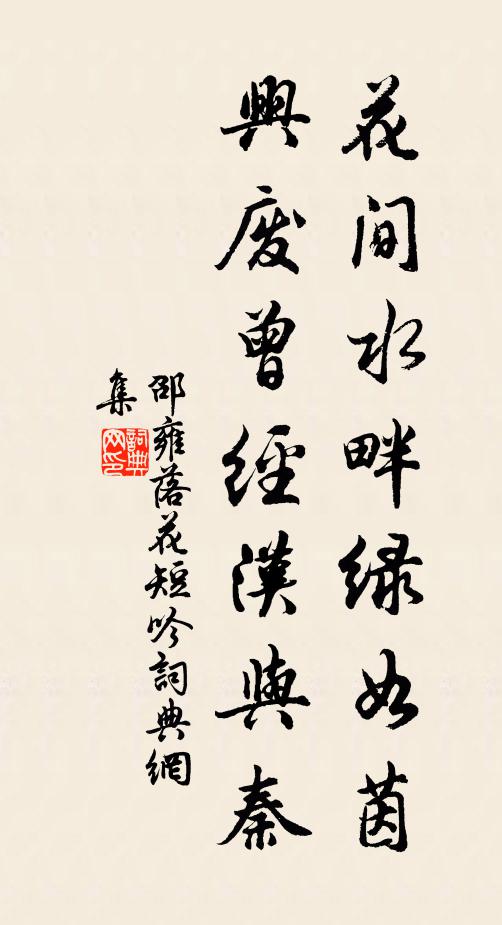 花间水畔绿如茵
興废曾經漢與秦
邵雍落花短吟詞典網
集
詞典
网印